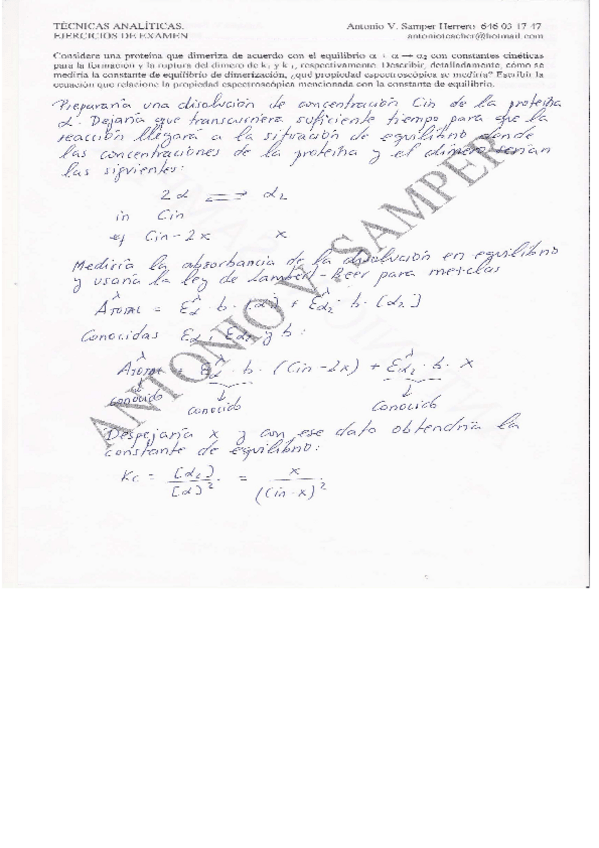 TÉCNICAS ANALÍTICAS. Antonio V. Samper Herrero 646 03 17 47
EJERCICIOS DE EXAMEN antonioteacher@hotmail.com
Considere una proteína que dimeriza de acuerdo con el equilibrio α + α → α₂ con constantes cinéticas
para la formación y la ruptura del dímero de k₁ y k₋₁, respectivamente. Describir, detalladamente, cómo se
mediría la constante de equilibrio de dimerización, ¿qué propiedad espectroscópica se mediría? Escribir la
ecuación que relacione la propiedad espectroscópica mencionada con la constante de equilibrio.
Prepararía una disolución de concentración Cin de la proteína
α. Dejaría que transcurriera suficiente tiempo para que la
reacción llegará a la situación de equilibrio donde
las concentraciones de la proteína y el dímero serían
las siguientes:
2α ⇌ α₂
in Cin
eq Cin-2x x
Mediría la absorbancia de la disolución en equilibrio
y usaría la ley de Lambert-Beer para mezclas
A^λ TOTAL = ε^λ α · b · (α) + ε^λ α₂ · b · (α₂)
Conocidas εα, εα₂ y b:
A^λ TOTAL = ε^λ α · b · (Cin-2x) + ε^λ α₂ · b · x
conocido conocido conocido
Despejaría x y con ese dato obtendría la
constante de equilibrio:
Kc = [α₂] / [α]² = x / (Cin-x)²
ANTONIO V. SAMPER